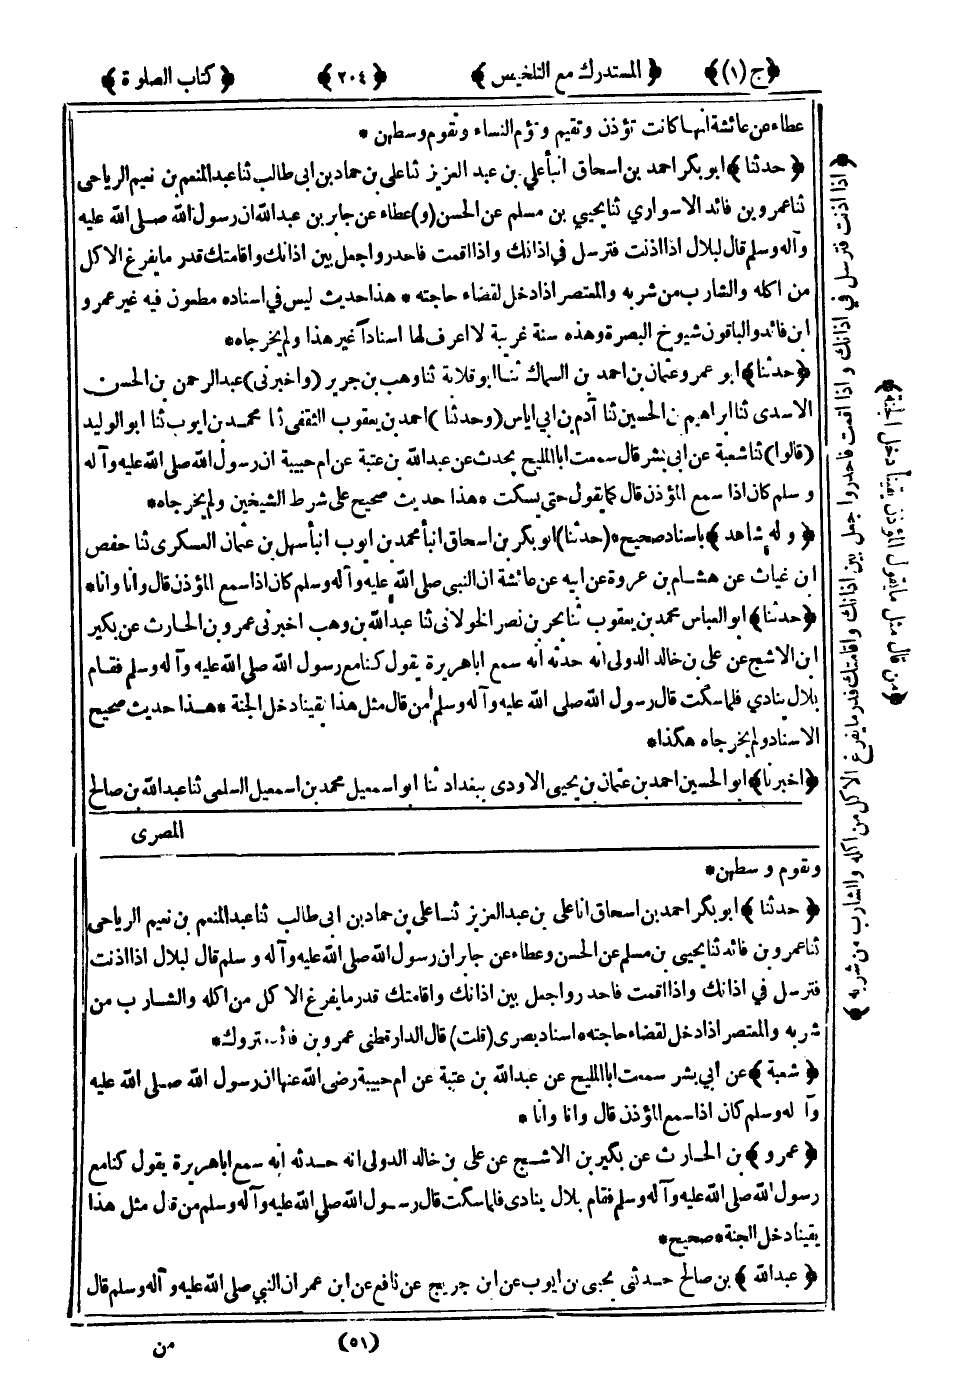 ﴿ج(١)﴾ ﴿المستدرك مع التلخيص﴾ ﴿٢٠٤﴾ ﴿كتاب الصلوة﴾
عطاء عن عائشة انها كانت تؤذن وتقيم وتؤم النساء وتقوم وسطهن *
﴿حدثنا﴾ ابو بكر احمد بن اسحاق انبأ علي بن عبد العزيز ثنا علي بن حماد بن ابي طالب ثنا عبد المنعم بن نعيم الرياحى
ثنا عمرو بن فائد الاسواري ثنا يحيي بن مسلم عن الحسن (و) عطاء عن جابر بن عبد الله ان رسول الله صلى الله عليه
وآله وسلم قال لبلال اذا اذنت فترسل في اذانك واذا اقمت فاحدر واجعل بين اذانك واقامتك قدر ما يفرغ الآكل
من اكله والشارب من شربه والمعتصر اذا دخل لقضاء حاجته * هذا حديث ليس في اسناده مطعون فيه غير عمرو
ابن فائد والباقون شيوخ البصرة وهذه سنة غريبة لا اعرف لها اسناداً غير هذا ولم يخرجاه *
﴿حدثنا﴾ ابو عمرو عثمان بن احمد بن السماك ثنا ابو قلابة ثنا وهب بن جرير (واخبرنى) عبد الرحمن بن الحسن
الاسدى ثنا ابراهيم بن الحسين ثنا آدم بن ابي اياس (وحدثنا) احمد بن يعقوب الثقفى ثنا محمد بن ايوب ثنا ابو الوليد
(قالوا) ثنا شعبة عن ابى بشر قال سمعت ابا المليح يحدث عن عبد الله بن عتبة عن ام حبيبة ان رسول الله صلى الله عليه وآله
وسلم كان اذا سمع المؤذن قال كما يقول حتى يسكت * هذا حديث صحيح على شرط الشيخين ولم يخرجاه *
﴿وله شاهد﴾ باسناد صحيح * (حدثنا) ابو بكر بن اسحاق انبأ محمد بن ايوب انبأ سهل بن عثمان العسكرى ثنا حفص
ابن غياث عن هشام بن عروة عن ابيه عن عائشة ان النبي صلى الله عليه وآله وسلم كان اذا سمع المؤذن قال وانا وانا *
﴿حدثنا﴾ ابو العباس محمد بن يعقوب ثنا بحر بن نصر الخولانى ثنا عبد الله بن وهب اخبرنى عمرو بن الحارث عن بكير
ابن الاشج عن علي بن خالد الدولى انه حدثه انه سمع ابا هريرة يقول كنا مع رسول الله صلى الله عليه وآله وسلم فقام
بلال ينادي فلما سكت قال رسول الله صلى الله عليه وآله وسلم من قال مثل هذا يقينا دخل الجنة * هذا حديث صحيح
الاسناد ولم يخرجاه هكذا *
﴿اخبرنا﴾ ابو الحسين احمد بن عثمان بن يحيى الاودى ببغداد ثنا ابو اسمعيل محمد بن اسمعيل السلمى ثنا عبد الله بن صالح
المصرى
وتقوم وسطهن *
﴿حدثنا﴾ ابو بكر احمد بن اسحاق انا على بن عبد العزيز ثنا على بن حماد بن ابى طالب ثنا عبد المنعم بن نعيم الرياحى
ثنا عمرو بن فائد ثنا يحيى بن مسلم عن الحسن وعطاء عن جابر ان رسول الله صلى الله عليه وآله وسلم قال لبلال اذا اذنت
فترسل في اذانك واذا اقمت فاحدر واجعل بين اذانك واقامتك قدر ما يفرغ الآكل من اكله والشارب من
شربه والمعتصر اذا دخل لقضاء حاجته * اسناد بصرى (قلت) قال الدارقطنى عمرو بن فائد متروك *
﴿شعبة﴾ عن ابي بشر سمعت ابا المليح عن عبد الله بن عتبة عن ام حبيبة رضى الله عنها ان رسول الله صلى الله عليه
وآله وسلم كان اذا سمع المؤذن قال وانا وانا *
﴿عمرو﴾ بن الحارث عن بكير بن الاشج عن على بن خالد الدولى انه حدثه انه سمع ابا هريرة يقول كنا مع
رسول الله صلى الله عليه وآله وسلم فقام بلال ينادى فلما سكت قال رسول الله صلى الله عليه وآله وسلم من قال مثل هذا
يقينا دخل الجنة * صحيح *
﴿عبد الله﴾ بن صالح حدثنى يحيى بن ايوب عن ابن جريج عن نافع عن ابن عمر ان النبي صلى الله عليه وآله وسلم قال
(٥١)
من
﴿اذا اذنت فترسل في اذانك واذا اقمت فاحدر واجعل بين اذانك واقامتك قدر ما يفرغ الآكل من اكله والشارب من شربه﴾
﴿من قال مثل ما يقول المؤذن يقينا دخل الجنة﴾